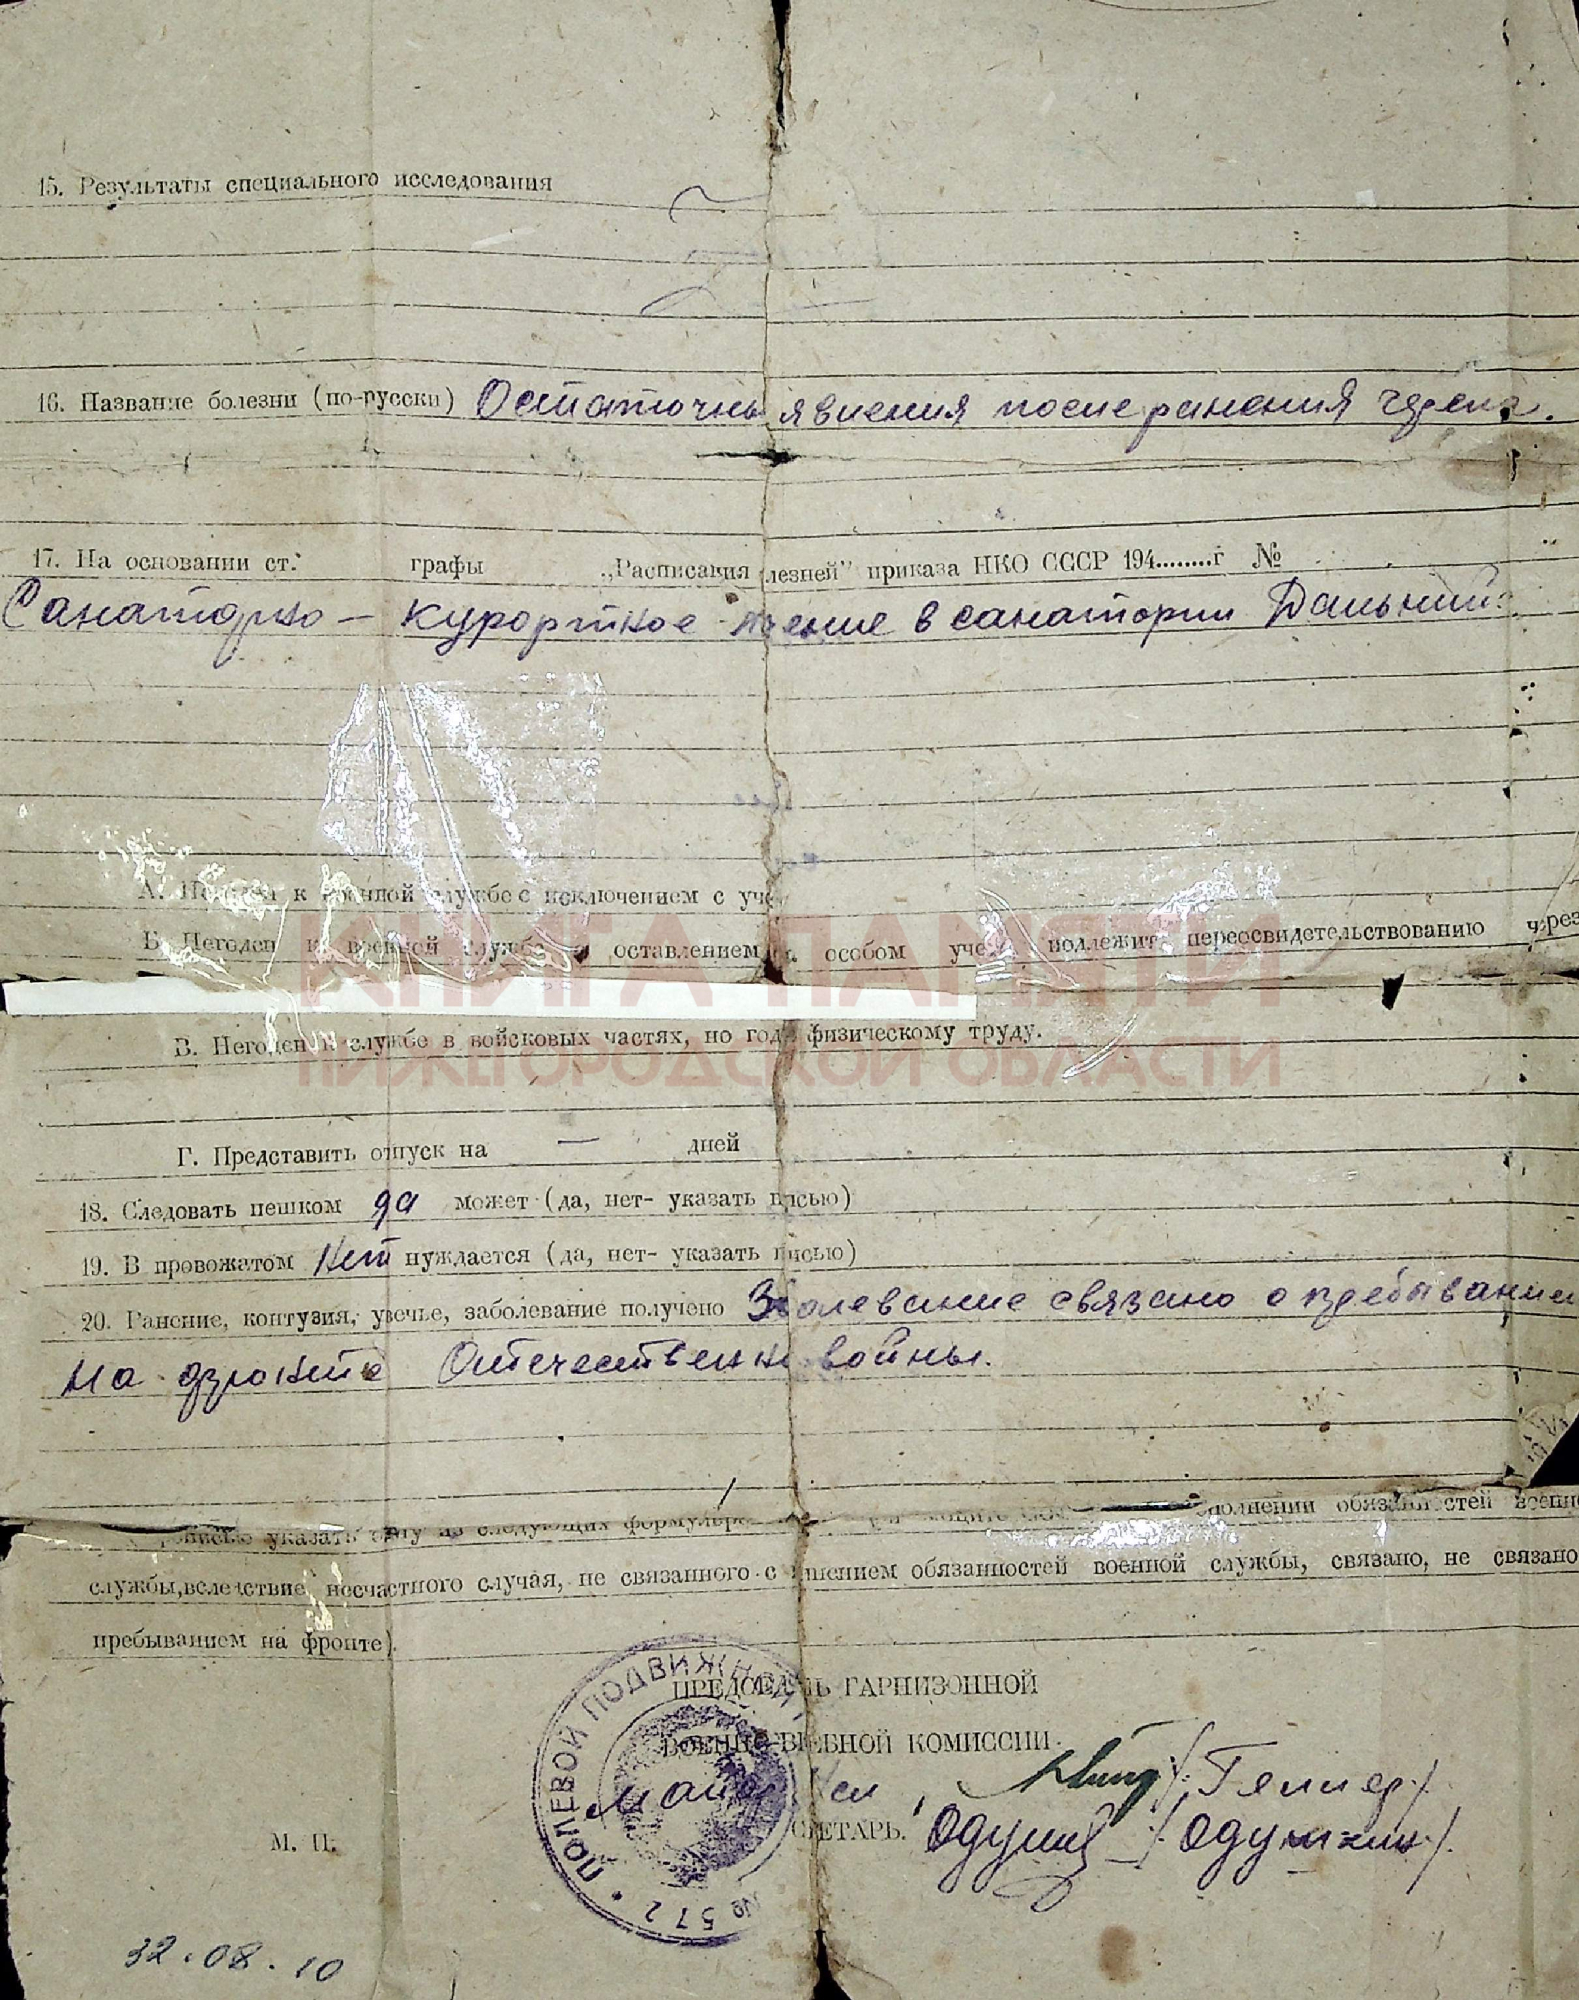 15. Результаты специального исследования
16. Название болезни (по-русски) Остаточны явления после ранения черепа.
17. На основании ст. графы „Расписания лезней" приказа НКО СССР 194........г №
Санаторно - курортное лечение в санатории Дальний.
А. Негоден к военной службе с исключением с уче
Б. Негоден к военной службе с оставлением особом уче подлежит переосвидетельствованию через
КНИГА ПАМЯТИ
В. Негоден к службе в войсковых частях, но год физическому труду.
НИЖЕГОРОДСКОЙ ОБЛАСТИ
Г. Представить отпуск на — дней
18. Следовать пешком да может (да, нет- указать писью)
19. В провожатом нет нуждается (да, нет- указать писью)
20. Ранение, контузия, увечье, заболевание получено Заболевание связано с пребыванием
на фронте Отечественн войны.
указать одну из следующих формулиро полнении обязанностей военн
службы, вследствие несчастного случая, не связанного с нением обязанностей военной службы, связано, не связано
пребыванием на фронте).
ПРЕДСЕДА Ь ГАРНИЗОННОЙ
ВОЕННО-ВР ЕБНОЙ КОМИССИИ
майор /Геллер/
М. П.
СЕКРЕТАРЬ. Одушк /Одушкин/.
ПОЛЕВОЙ ПОДВИЖНОЙ
№ 572
32.08.10